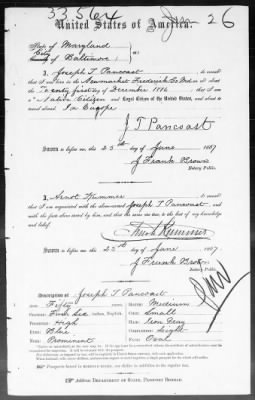 33564 Jun 26
United States of America.
State of Maryland
City
of Baltimore
I, Joseph T Pancoast, do swear
that I was born in Newmarket Frederick Co Md on about
the Twenty first day of December 1836, that I am
a Native Citizen and Loyal Citizen of the United States, and about to
travel abroad. In Europe
J. T. Pancoast
Sworn to before me, this 25th day of June 1887
J Frank Brown
Notary Public.
I, Arnot Kummer, do swear
that I am acquainted with the above-named Joseph T Pancoast and
with the facts above stated by him, and that the same are true, to the best of my knowledge
and belief.
Arnot Kummer
Sworn to before me, this 25th day of June 1887
J Frank Brown
Notary Public.
Description of Joseph T Pancoast
Age: Fifty Mouth: Medium
Stature: Five Six inches, English. Chin: Small
Forehead: High Hair: Iron Gray
Eyes: Blue Complexion: Light
Nose: Prominent Face: Oval
Address Department of State, Passport Bureau.